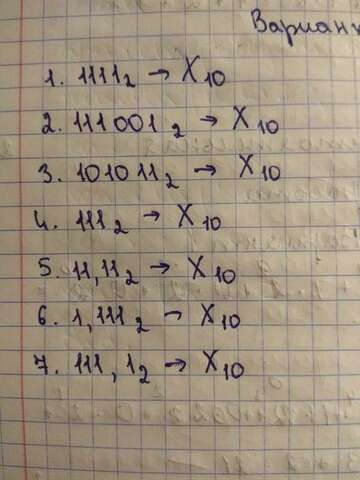 Вариант
1. 1111₂ → X₁₀
2. 111001₂ → X₁₀
3. 101011₂ → X₁₀
4. 111₂ → X₁₀
5. 11,11₂ → X₁₀
6. 1,111₂ → X₁₀
7. 111,1₂ → X₁₀